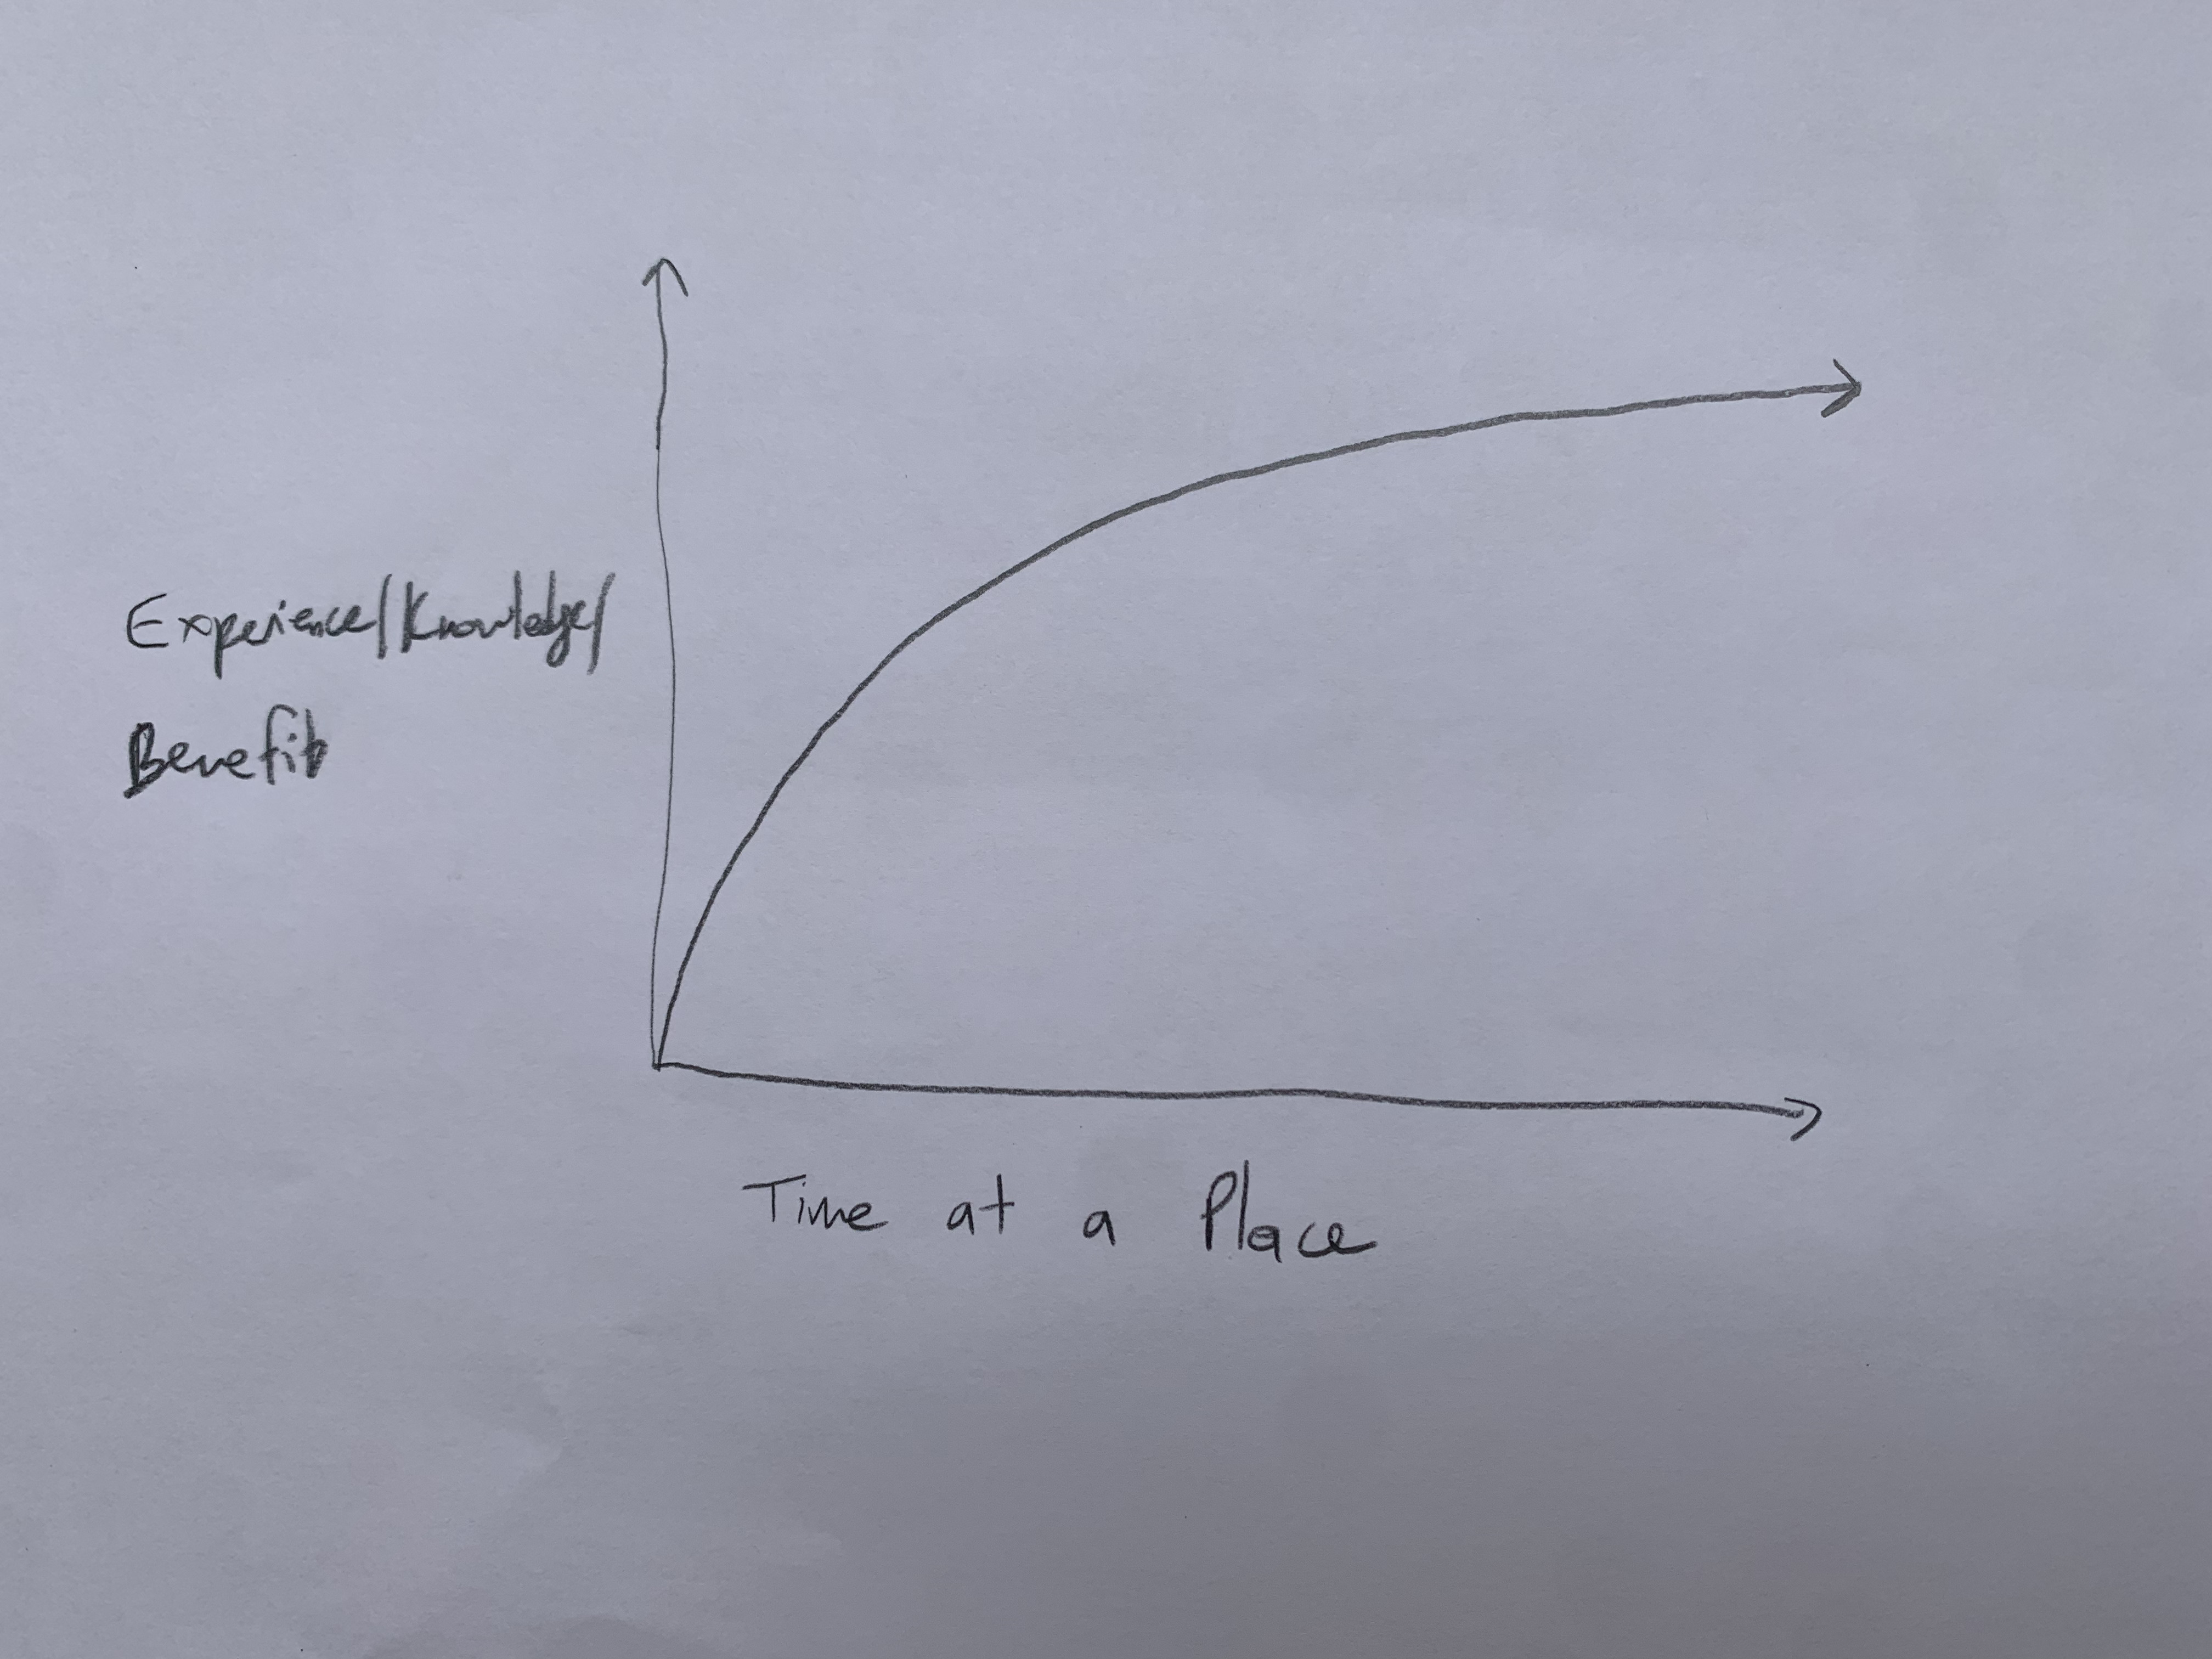 Experience/Knowledge/
Benefit
Time at a Place